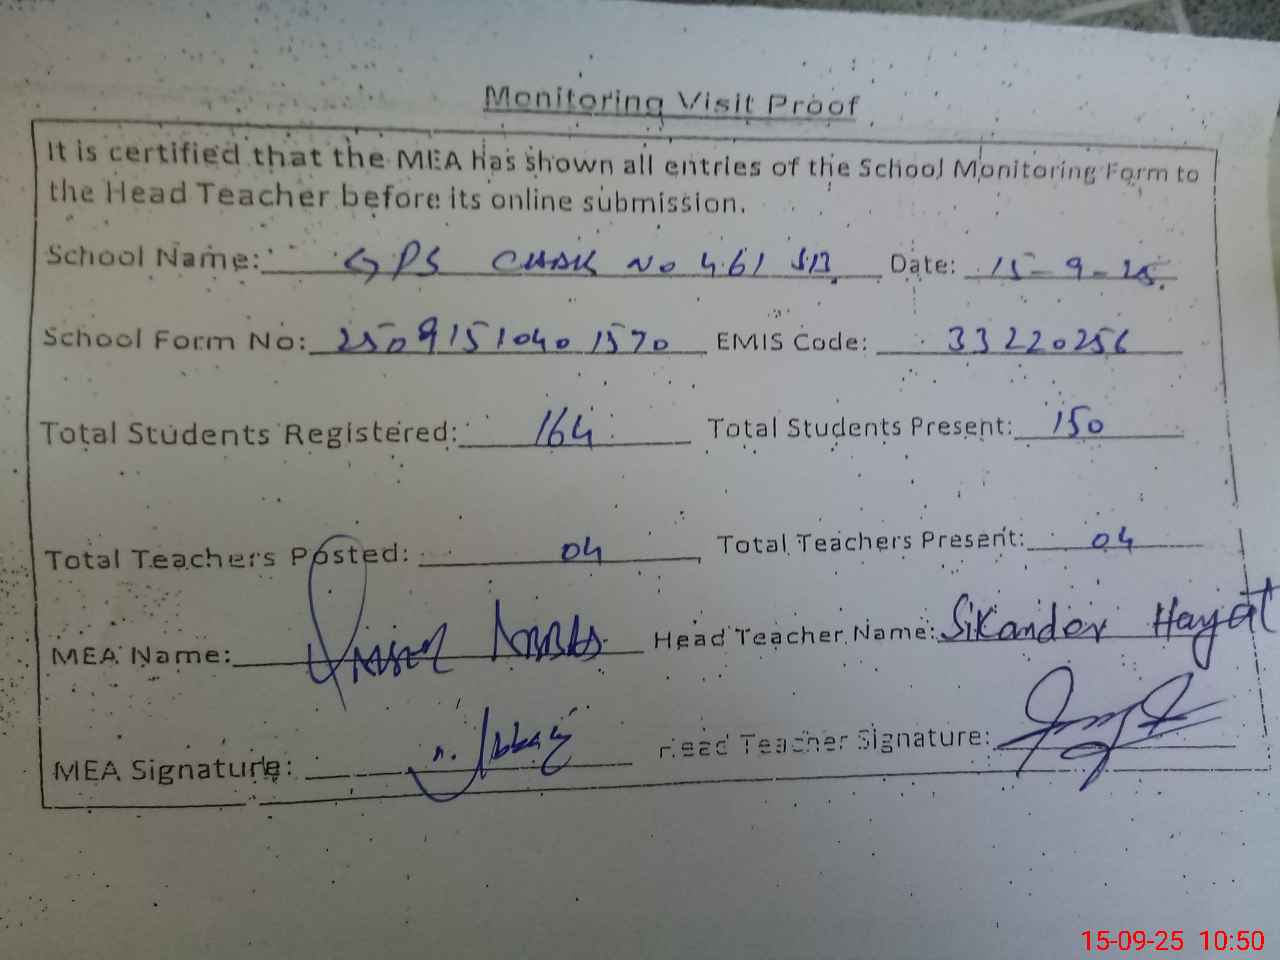 Monitoring Visit Proof
It is certified that the MEA has shown all entries of the School Monitoring Form to
the Head Teacher before its online submission.
School Name: GPS CHAK No 461 JB Date: 15-9-25
School Form No: 2509151040 1570 EMIS Code: 33220256
Total Students Registered: 164 Total Students Present: 150
Total Teachers Posted: 04 Total Teachers Present: 04
MEA Name: Abbas Head Teacher Name: Sikander Hayat
MEA Signature: Head Teacher Signature:
15-09-25 10:50